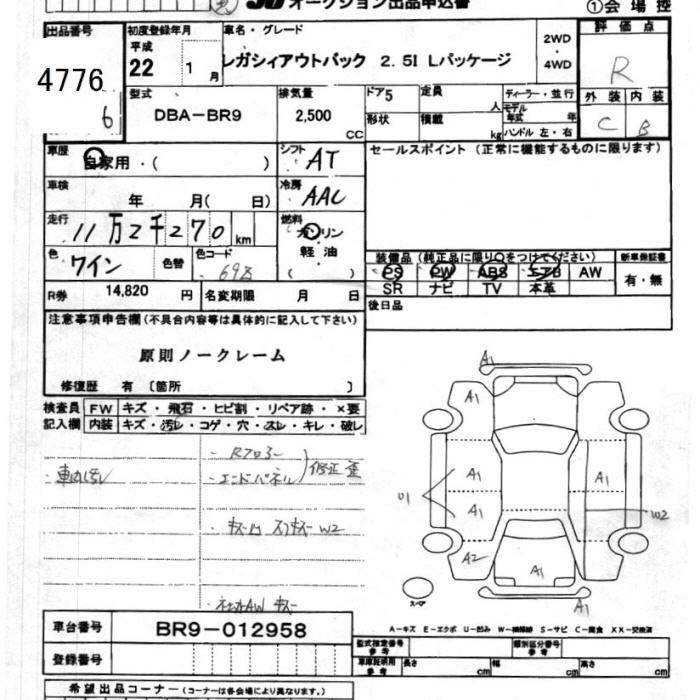 オークション出品申込書
①会場控
出品番号
4776
6
初度登録年月
平成
22 1月
車名・グレード
レガシィアウトバック 2.5I Lパッケージ
2WD
・
4WD
評価点
R
外装 内装
C B
型式
DBA-BR9
排気量
2,500
CC
ドア5
形状
定員
人
積載
kg
ディーラー・並行
モデル
年式 年
ハンドル 左・右
車歴
自家用・( )
シフト
AT
セールスポイント (正常に機能するものに限ります)
車検
年 月( 日)
冷房
AAC
走行
11万2千270 km
燃料
ガソリン
・
軽油
( )
色
ワイン
色替
色コード
698
装備品(純正品に限り○をつけてください)
PS PW ABS エアB AW
SR ナビ TV 本革
新車保証書
有・無
R券 14,820 円
名変期限 月 日
後日品
注意事項申告欄(不具合内容等は具体的に記入して下さい)
原則ノークレーム
修復歴 有 〔箇所 〕
検査員
記入欄
FW キズ・飛石・ヒビ割・リペア跡・×要
内装 キズ・汚レ・コゲ・穴・スレ・キレ・破レ
・車内汚レ
・Rフロアー
・エンドパネル
修正歪
・キズ凹
W2
AW キズ
A1
A1
A1
A1
A1
A2
A1
A1
U1
W2
スペア
A-キズ E-エクボ U-凹み W-補修跡 S-サビ C-腐食 XX-交換済
車台番号
BR9-012958
登録番号
型式指定番号
参考
類別区分番号
参考
車庫証明用
参考
長さ cm 幅 cm 高さ cm
希望出品コーナー(コーナーは各会場により異なります。)